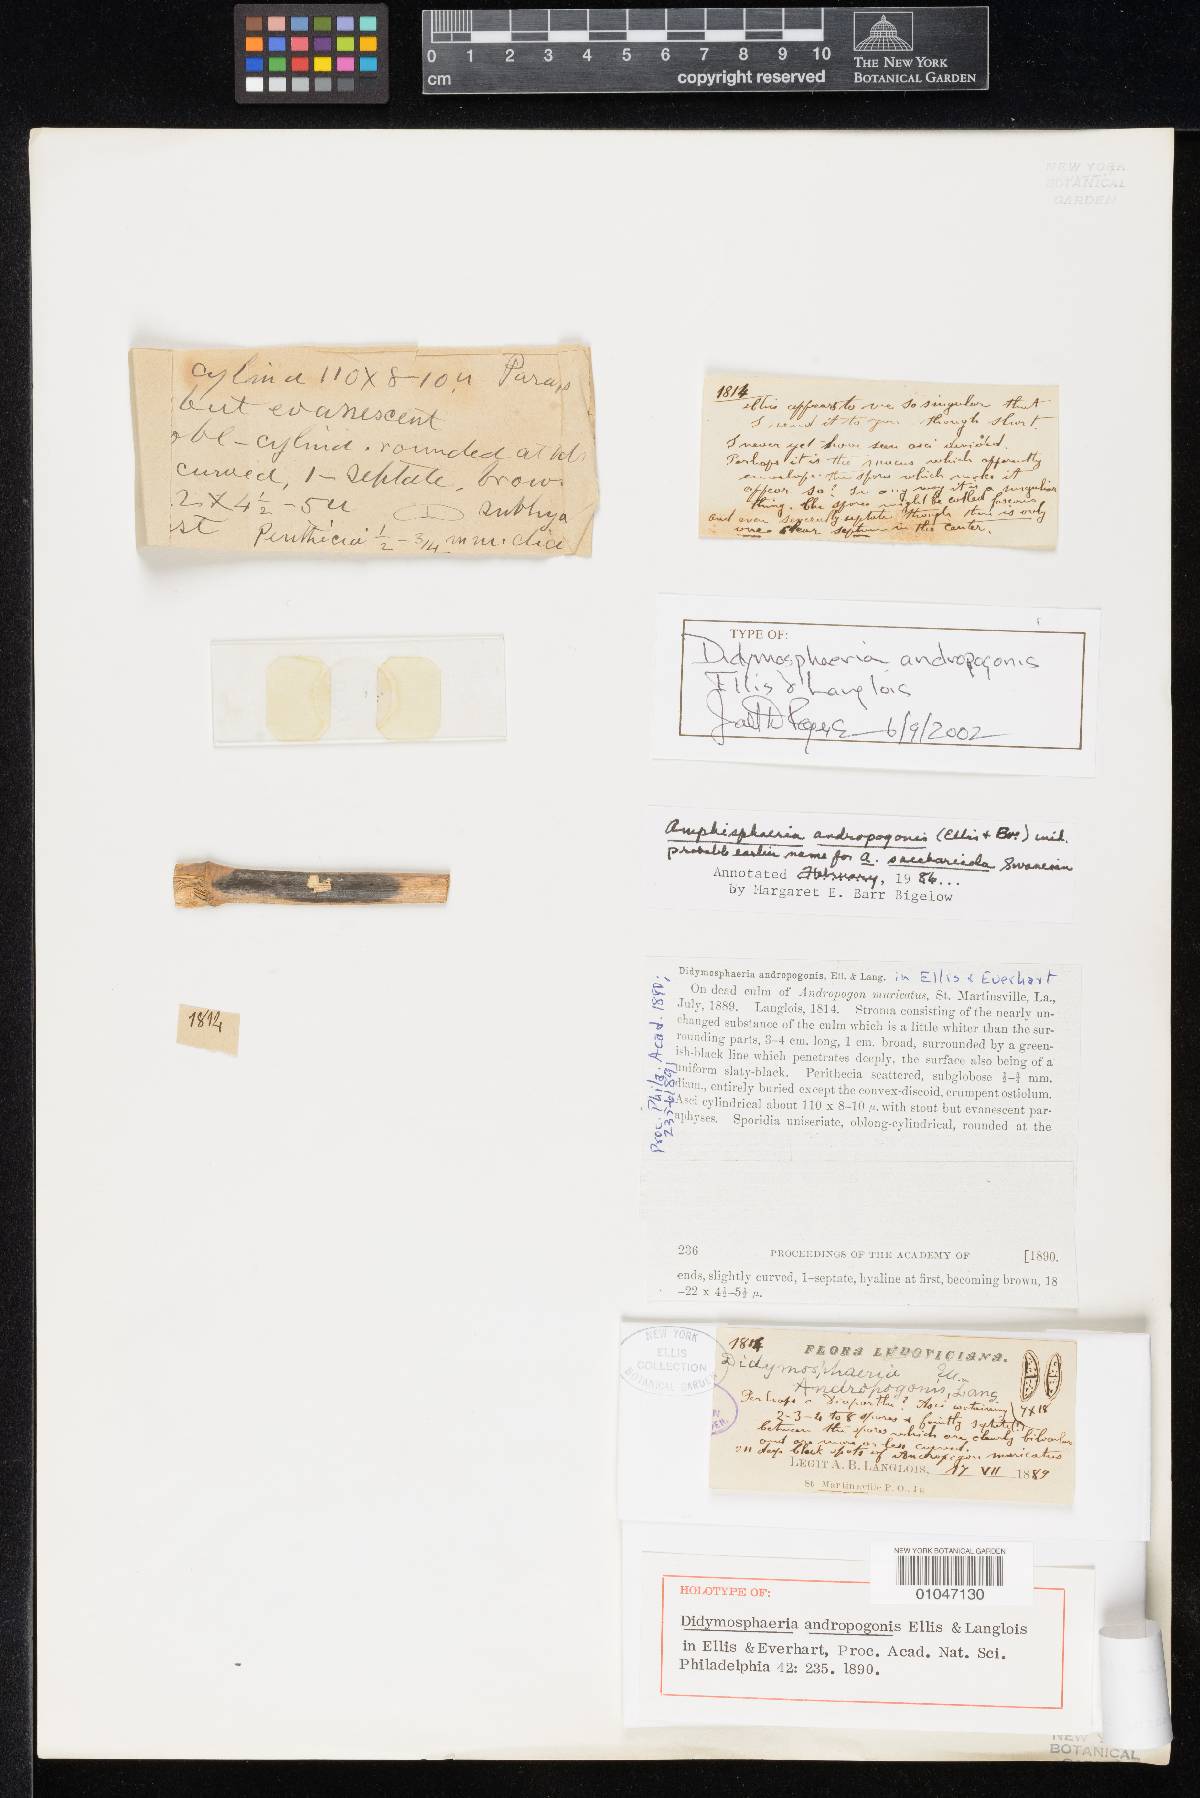 0 1 2 3 4 5 6 7 8 9 10
cm
copyright reserved
THE NEW YORK
BOTANICAL GARDEN
NEW YORK
BOTANICAL
GARDEN
cylind 110 X 8-10 u Parap
but evanescent
obl-cylind. rounded at
curved, 1-septate, brow
2 X 4½-5u subhya
st Perithecia ½-¾ mm. dia
1814
This appears to me so singular that
I send it to you though short.
I never yet have seen asci divided.
Perhaps it is the mucus which apparently
envelops the spores which makes it
appear so? In any way it is a singular
thing. The spores might be called fuscous,
and even severally septate though there is only
one clear septum in the center.
TYPE OF:
Didymosphaeria andropogonis
Ellis & Langlois
6/9/2002
Amphisphaeria andropogonis (Ellis & Ev.)
probable earlier name for A. sacchariada Swanein
Annotated February, 1986...
by Margaret E. Barr Bigelow
Didymosphaeria andropogonis, Ell. & Lang. in Ellis & Everhart
On dead culm of Andropogon muricatus, St. Martinsville, La.,
July, 1889. Langlois, 1814. Stroma consisting of the nearly un-
changed substance of the culm which is a little whiter than the sur-
rounding parts, 3-4 cm. long, 1 cm. broad, surrounded by a green-
ish-black line which penetrates deeply, the surface also being of a
uniform slaty-black. Perithecia scattered, subglobose ½-¾ mm.
diam., entirely buried except the convex-discoid, erumpent ostiolum.
Asci cylindrical about 110 x 8-10 µ. with stout but evanescent par-
aphyses. Sporidia uniseriate, oblong-cylindrical, rounded at the
Proc. Phila. Acad. 1890;
235-6. 1891
236 PROCEEDINGS OF THE ACADEMY OF [1890.
ends, slightly curved, 1-septate, hyaline at first, becoming brown, 18
-22 x 4½-5½ µ.
1814
NEW YORK
ELLIS
COLLECTION
BOTANICAL GARDEN
1814
FLORA LUDOVICIANA.
Didymosphaeria Ell.
Andropogonis, Lang
Perhaps a Diaporthe? Asci containing 7 x 18
2-3-4 to 8 spores & faintly septate(?)
between the spores which are clearly bilocular
and are more or less curved.
on deep black spots of Andropogon muricatus
LEGIT A. B. LANGLOIS, 17 VII 1889
St Martinsville P. O., La
NEW YORK BOTANICAL GARDEN
01047130
HOLOTYPE OF:
Didymosphaeria andropogonis Ellis & Langlois
in Ellis & Everhart, Proc. Acad. Nat. Sci.
Philadelphia 42: 235. 1890.
NEW Y
BOTANICAL